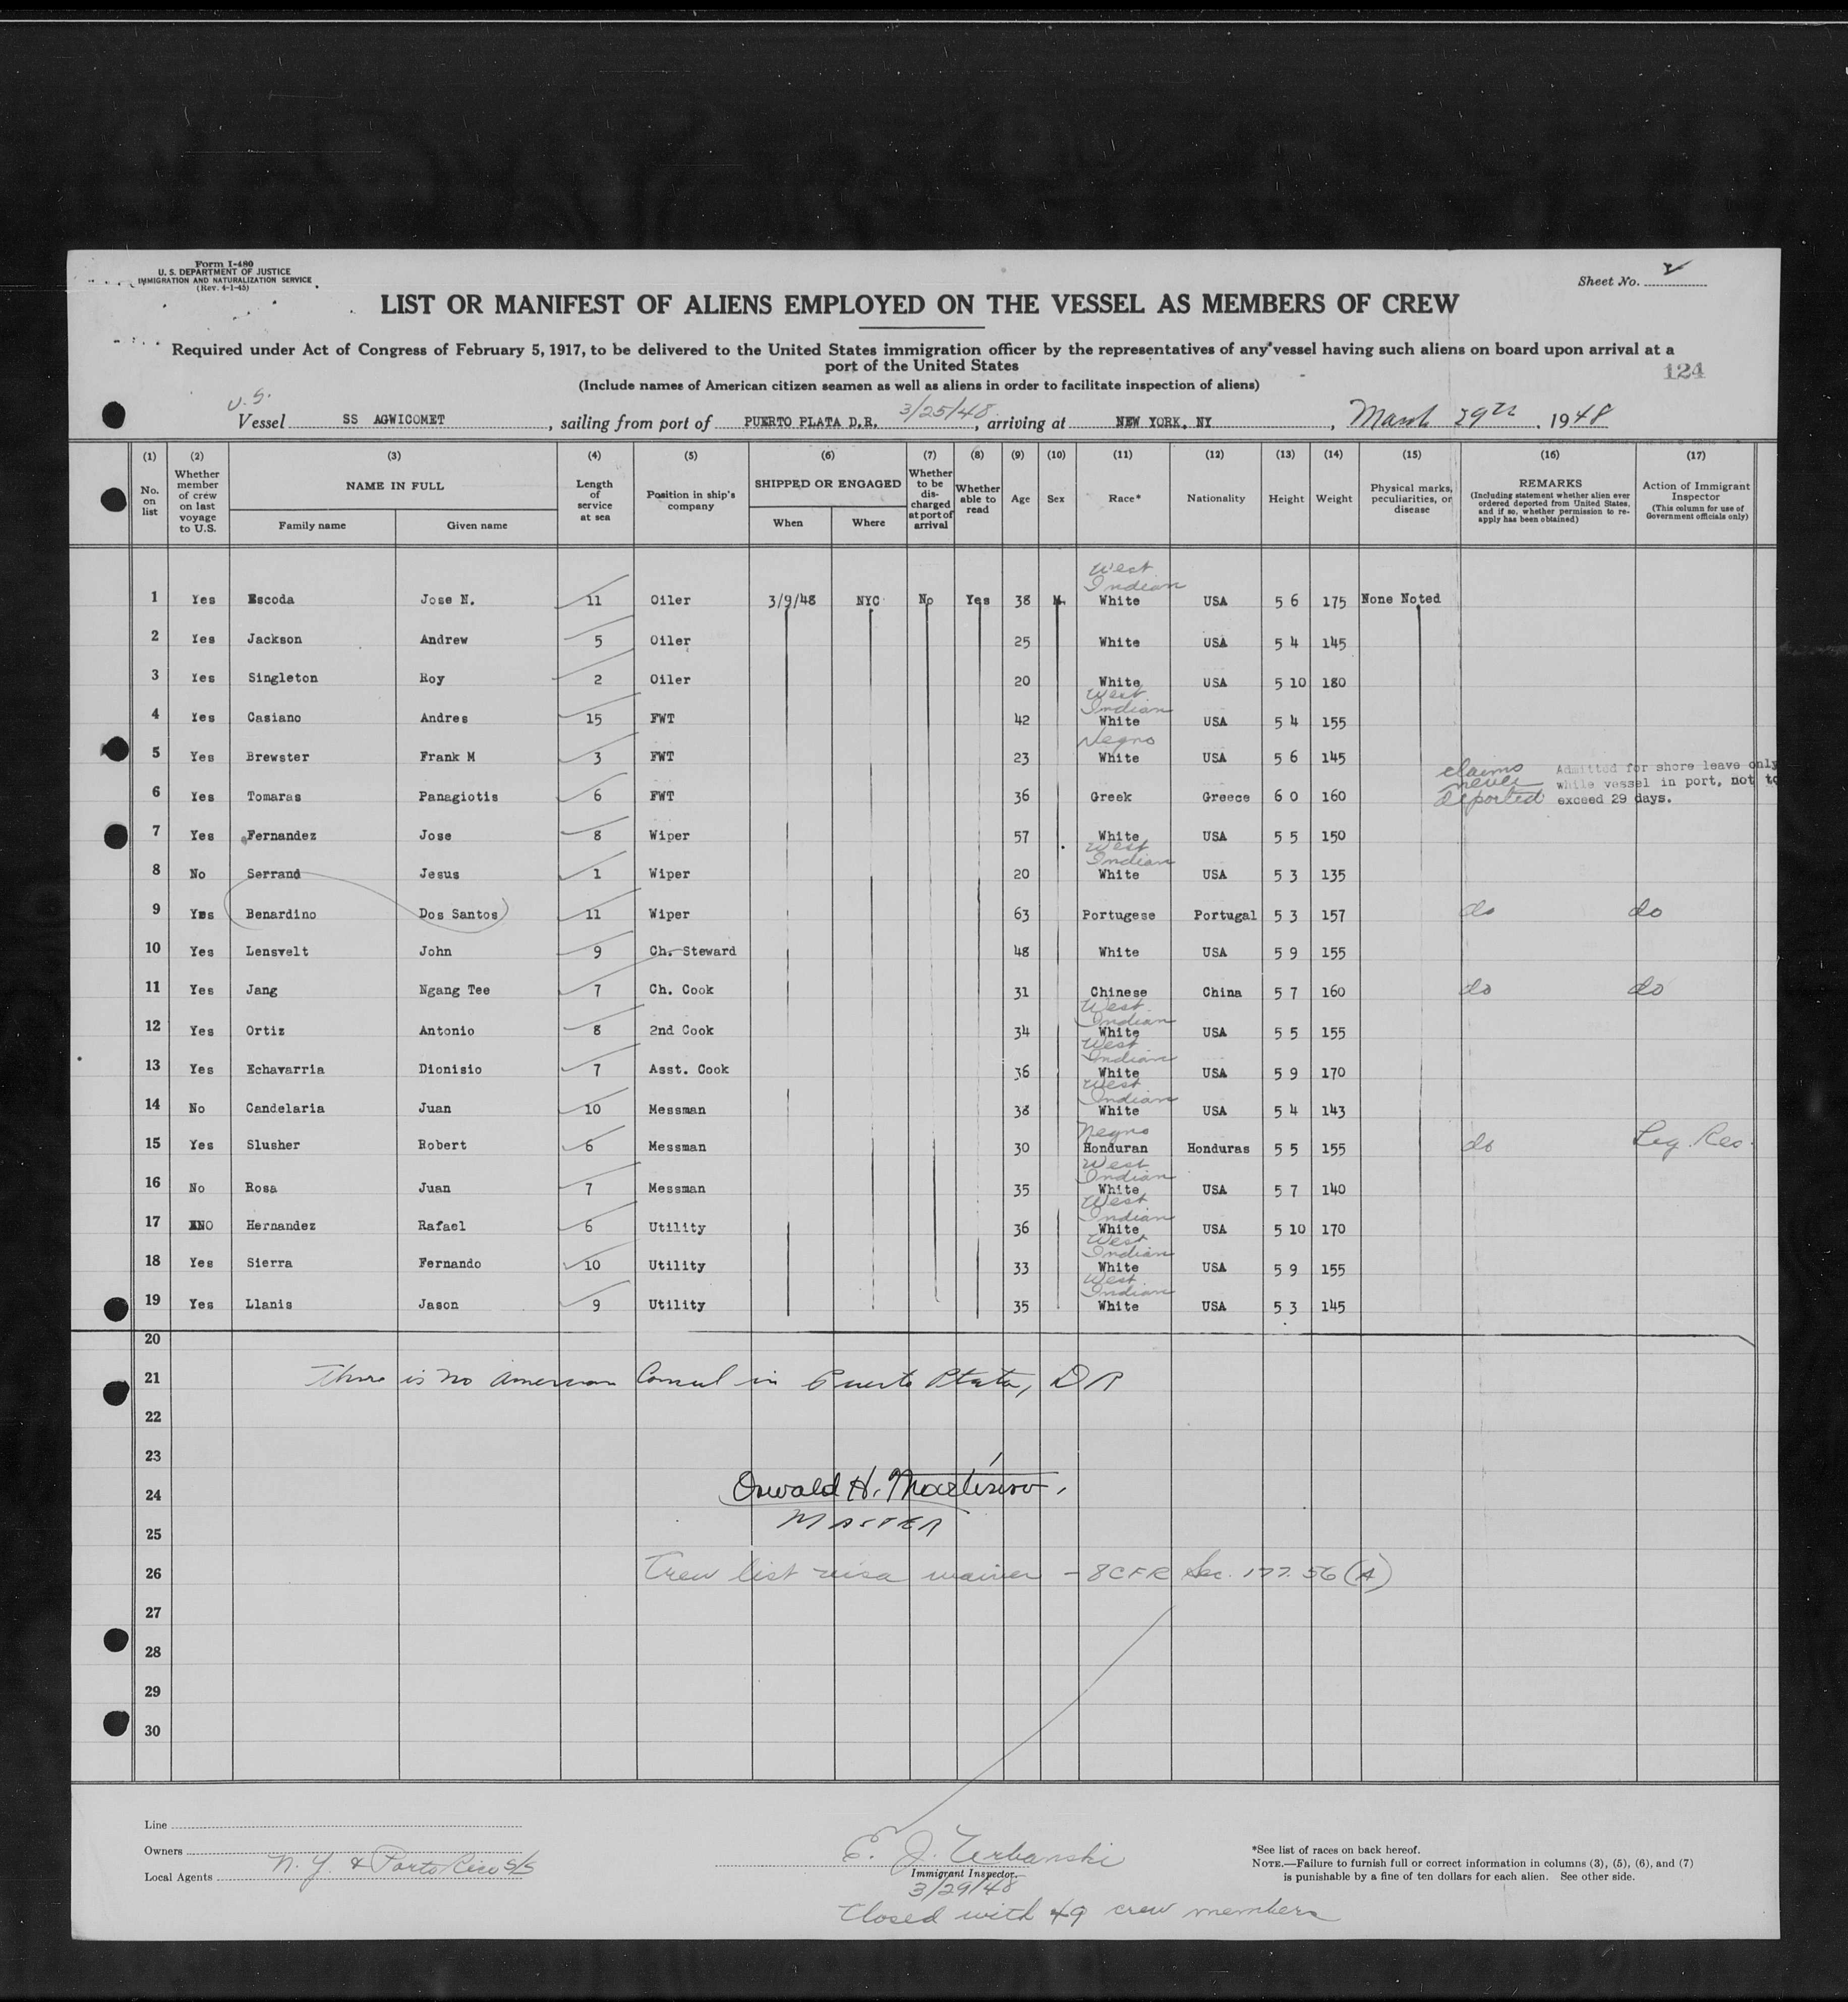 Form I-480
U. S. DEPARTMENT OF JUSTICE
IMMIGRATION AND NATURALIZATION SERVICE
(Rev. 4-1-45)
Sheet No. 2
LIST OR MANIFEST OF ALIENS EMPLOYED ON THE VESSEL AS MEMBERS OF CREW
Required under Act of Congress of February 5, 1917, to be delivered to the United States immigration officer by the representatives of any vessel having such aliens on board upon arrival at a
port of the United States
124
(Include names of American citizen seamen as well as aliens in order to facilitate inspection of aliens)
U.S.
Vessel SS AGWICOMET, sailing from port of PUERTO PLATA D.R. 3/25/48, arriving at NEW YORK, NY, March 29th, 1948
(1) (2) (3) (4) (5) (6) (7) (8) (9) (10) (11) (12) (13) (14) (15) (16) (17)
No. on list
Whether member of crew on last voyage to U.S.
NAME IN FULL
Family name
Given name
Length of service at sea
Position in ship's company
SHIPPED OR ENGAGED
When
Where
Whether to be discharged at port of arrival
Whether able to read
Age
Sex
Race*
Nationality
Height
Weight
Physical marks, peculiarities, or disease
REMARKS
(Including statement whether alien ever ordered deported from United States, and if so, whether permission to reapply has been obtained)
Action of Immigrant Inspector
(This column for use of Government officials only)
West Indian
1 Yes Escoda Jose N. 11 Oiler 3/9/48 NYC No Yes 38 M White USA 5 6 175 None Noted
2 Yes Jackson Andrew 5 Oiler 25 White USA 5 4 145
3 Yes Singleton Roy 2 Oiler 20 White USA 5 10 180
West Indian
4 Yes Casiano Andres 15 FWT 42 White USA 5 4 155
Negro
5 Yes Brewster Frank M 3 FWT 23 White USA 5 6 145
6 Yes Tomaras Panagiotis 6 FWT 36 Greek Greece 6 0 160 claims never deported Admitted for shore leave only while vessel in port, not to exceed 29 days.
7 Yes Fernandez Jose 8 Wiper 57 White USA 5 5 150
West Indian
8 No Serrand Jesus 1 Wiper 20 White USA 5 3 135
9 Yes Benardino Dos Santos 11 Wiper 63 Portugese Portugal 5 3 157 do do
10 Yes Lensvelt John 9 Ch. Steward 48 White USA 5 9 155
11 Yes Jang Ngang Tee 7 Ch. Cook 31 Chinese China 5 7 160 do do
West Indian
12 Yes Ortiz Antonio 8 2nd Cook 34 White USA 5 5 155
West Indian
13 Yes Echavarria Dionisio 7 Asst. Cook 36 White USA 5 9 170
West Indian
14 No Candelaria Juan 10 Messman 38 White USA 5 4 143
Negro
15 Yes Slusher Robert 6 Messman 30 Honduran Honduras 5 5 155 do Leg. Res.
West Indian
16 No Rosa Juan 7 Messman 35 White USA 5 7 140
West Indian
17 NO Hernandez Rafael 6 Utility 36 White USA 5 10 170
West Indian
18 Yes Sierra Fernando 10 Utility 33 White USA 5 9 155
West Indian
19 Yes Llanis Jason 9 Utility 35 White USA 5 3 145
20
21 There is no American Consul in Puerto Plata, DR
22
23
24 Oswald H.
25 MASTER
26 Crew list visa waiver - 8CFR Sec. 177.56(A)
27
28
29
30
Line
Owners
Local Agents N. Y. & Porto Rico S/S
E. J. Urbanski
Immigrant Inspector.
3/29/48
Closed with 49 crew members
*See list of races on back hereof.
NOTE.—Failure to furnish full or correct information in columns (3), (5), (6), and (7)
is punishable by a fine of ten dollars for each alien. See other side.